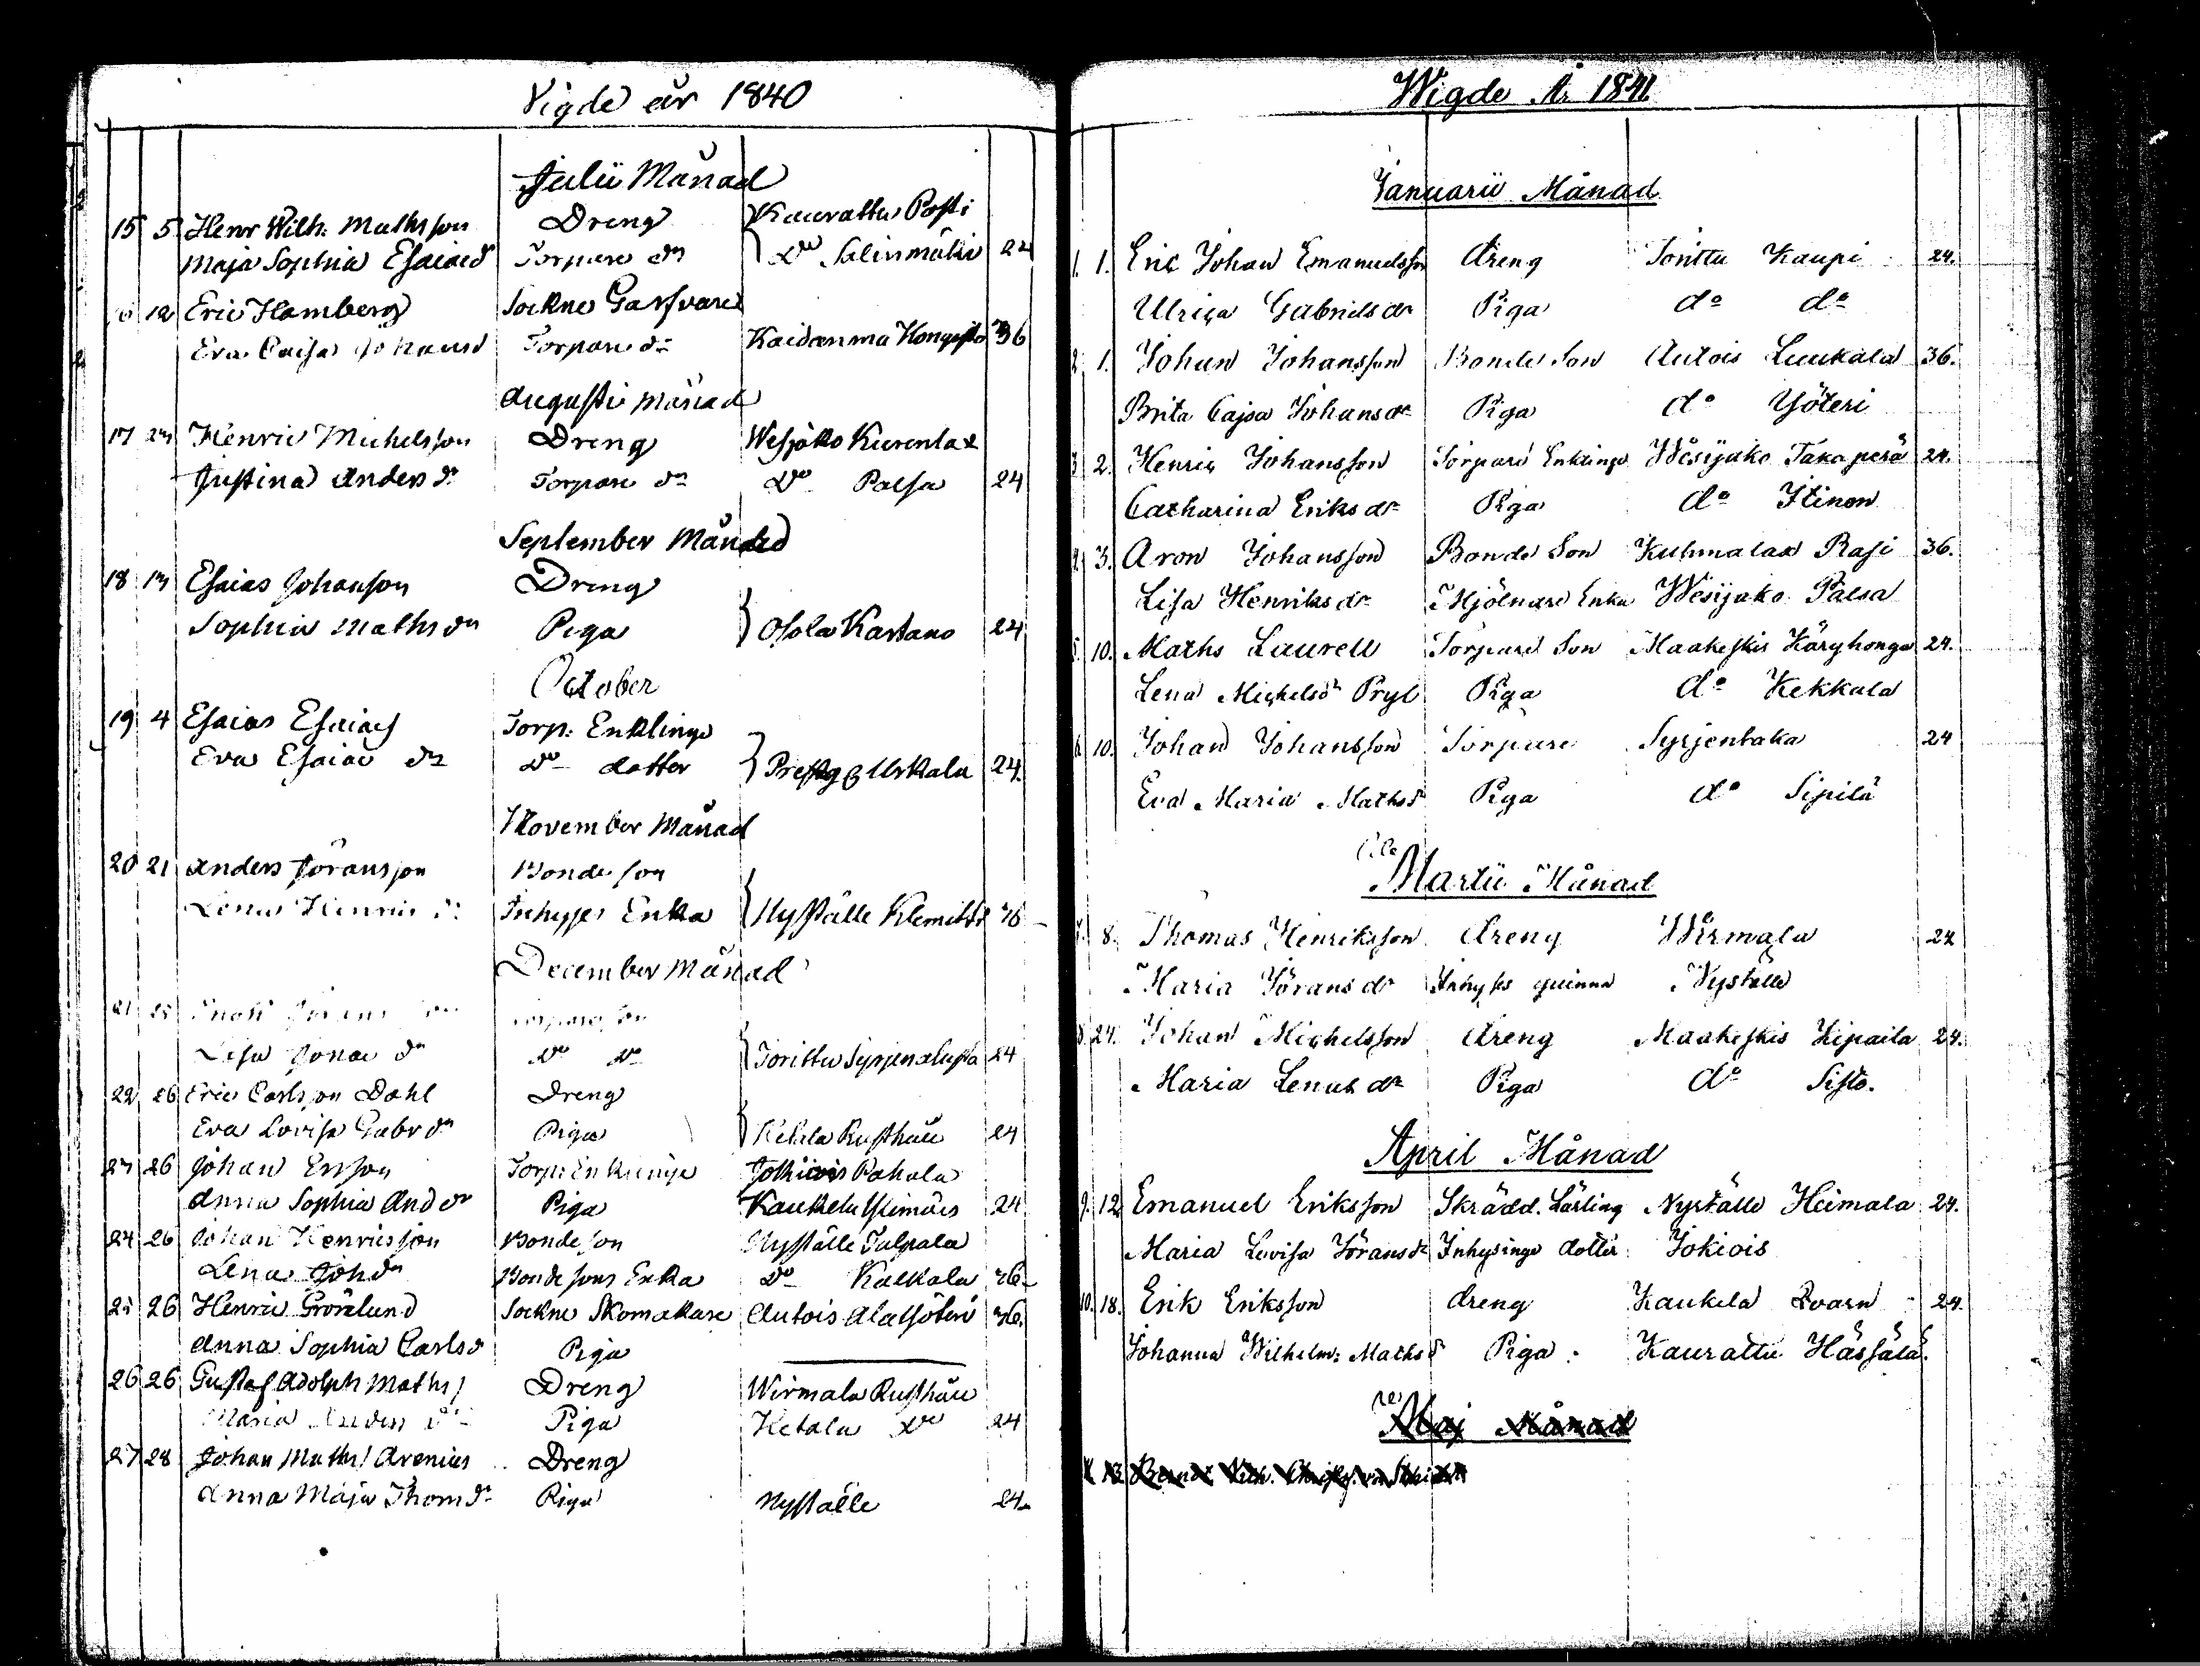 Vigde år 1840
Julii Månad
15 5 Henr Wilh: Mathsson Dreng Kaurattu Posti
Maja Sophia Esaiaed Torpare dr Do Salinmäki 24
12 Eric Hamberg Sockne Garfvare
Eva Caisa Johansd Torpare dr Kaidanma 36
Augusti Månad
17 Henric Michelsson Dreng Wesjako Kurenlax
Justina Anders dr Torpare dr Do Paesa 24
September Månad
18 13 Esaias Johansson Dreng
Sophia Maths dr Piga Osola Kartano 24
October
19 4 Esaias Esaiae Torp: Enklinge
Eva Esaiae dr Do dotter Urkala 24.
November Månad
20 21 Anders Göransson Bonde son
Lena Henrics dr Inhyses Enka Nyställe 36
December Månad
21
Lisa Jonae dr Do Do 24
22 26 Eric Carlsson Dahl Dreng
Eva Lovisa Gabr dr Piga Ketala Rusthåll 24
23 26 Johan Ersson Torp: Enklinge Jokiois Pahala
Anna Sophia And dr Piga Kaukela 24
24 26 Johan Henricsson Bondeson Nyställe Talpala
Lena Joh dr Bondesons Enka Do Kalkala 36
25 26 Henric Grönlund Sockne Skomakare Autois Alasjöteri 36.
Anna Sophia Carlsd Piga
26 26 Gustaf Adolph Maths Dreng Wirmala Rusthåll
Maria Anders dr Piga Ketala Do 24
27 28 Johan Maths Arenius Dreng
Anna Maja Thom dr Piga Nyställe 24
Wigde År 1841.
Januarii Månad
1. 1. Eric Johan Emanuelsson dreng Torittu Kaupi 24.
Ulrica Gabriels dr Piga do do
2 1. Johan Johansson Bonde Son Autois Luukala 36.
Brita Cajsa Johans dr Piga do Yöteri
3 2. Henric Johansson Torpare Enklinge Wesijako Takaperä 24.
Catharina Eriks dr Piga do Itinen
4 3. Aron Johansson Bonde Son Kuhmalax Rasi 36.
Lisa Henriks dr Mjölnare Enka Wesijako Paesa
5. 10. Maths Laurell Torpare Son Maakeskis Käryhonga 24.
Lena Michelsdr Pryl Piga do Kekkala
6. 10. Johan Johansson Torpare Syrjentaka 24
Eva Maria Mathsdr Piga do Sipilä
Martii Månad
7. 8. Thomas Henriksson dreng Wirmala 24
Maria Jörans dr Inhyses quinna Nyställe
8. 24. Johan Michelsson dreng Maakeskis Kipaila 24.
Maria Lenus dr Piga do Sisto.
April Månad
9. 12. Emanuel Eriksson Skrädd. Lärling Nyställe Heimala 24.
Maria Lovisa Jörans dr Inhysinge dotter Jokiois
10. 18. Erik Eriksson dreng Kaukela Qvarn 24.
Johanna Wilhelm: Mathsdr Piga Kaurattu Hässälä.
Maj Månad